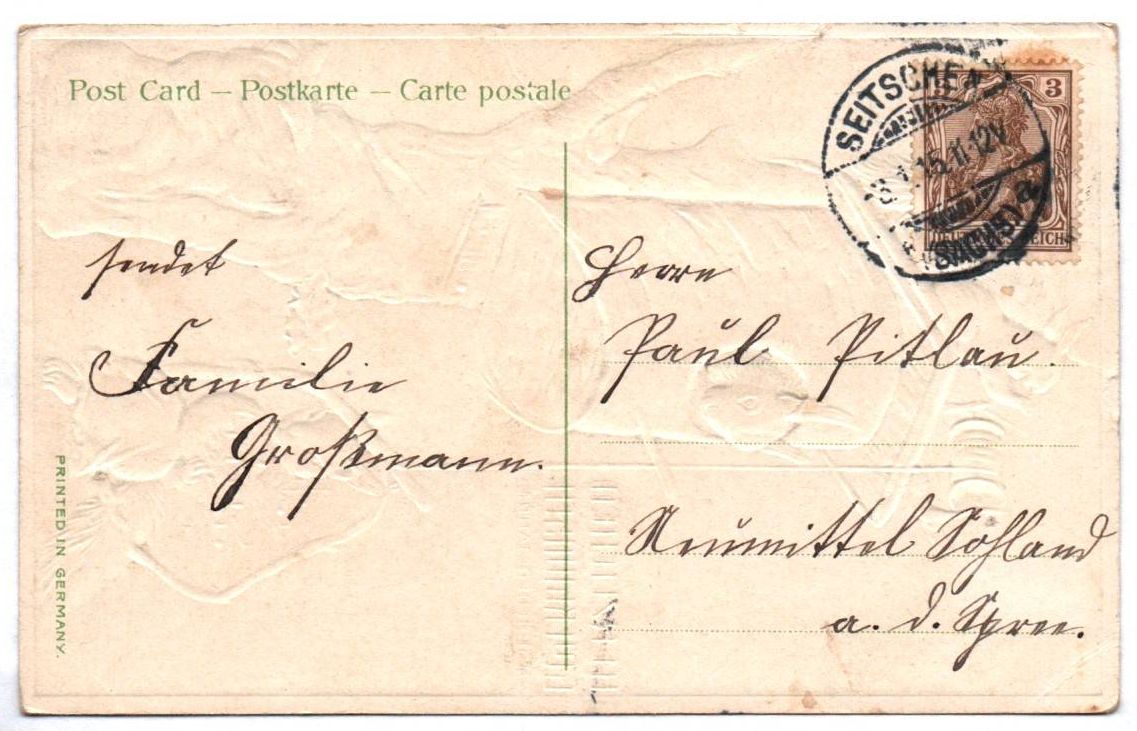 Post Card – Postkarte – Carte postale
SEITSCHEN
1.15. 11-12V
(SACHS.) a
3
DEUTSCHES REICH
sendet
Familie
Großmann.
Herrn
Paul Pitlau.
Neumittel Sohland
a. d. Spree.
PRINTED IN GERMANY.